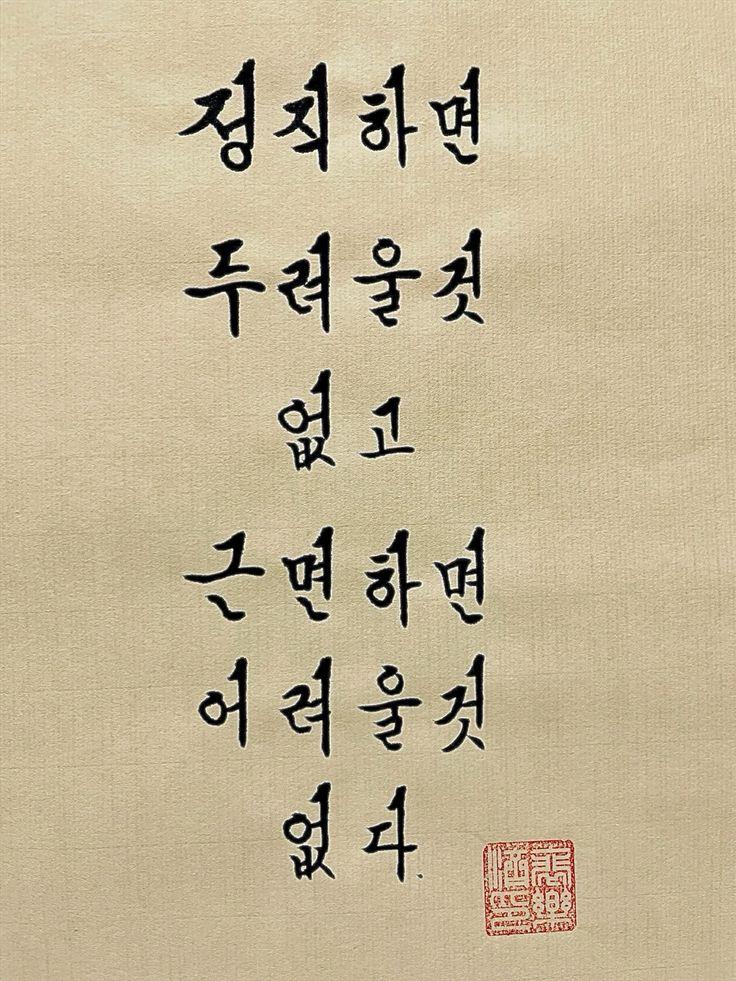 정직하면
두려울것
없고
근면하면
어려울것
없다.